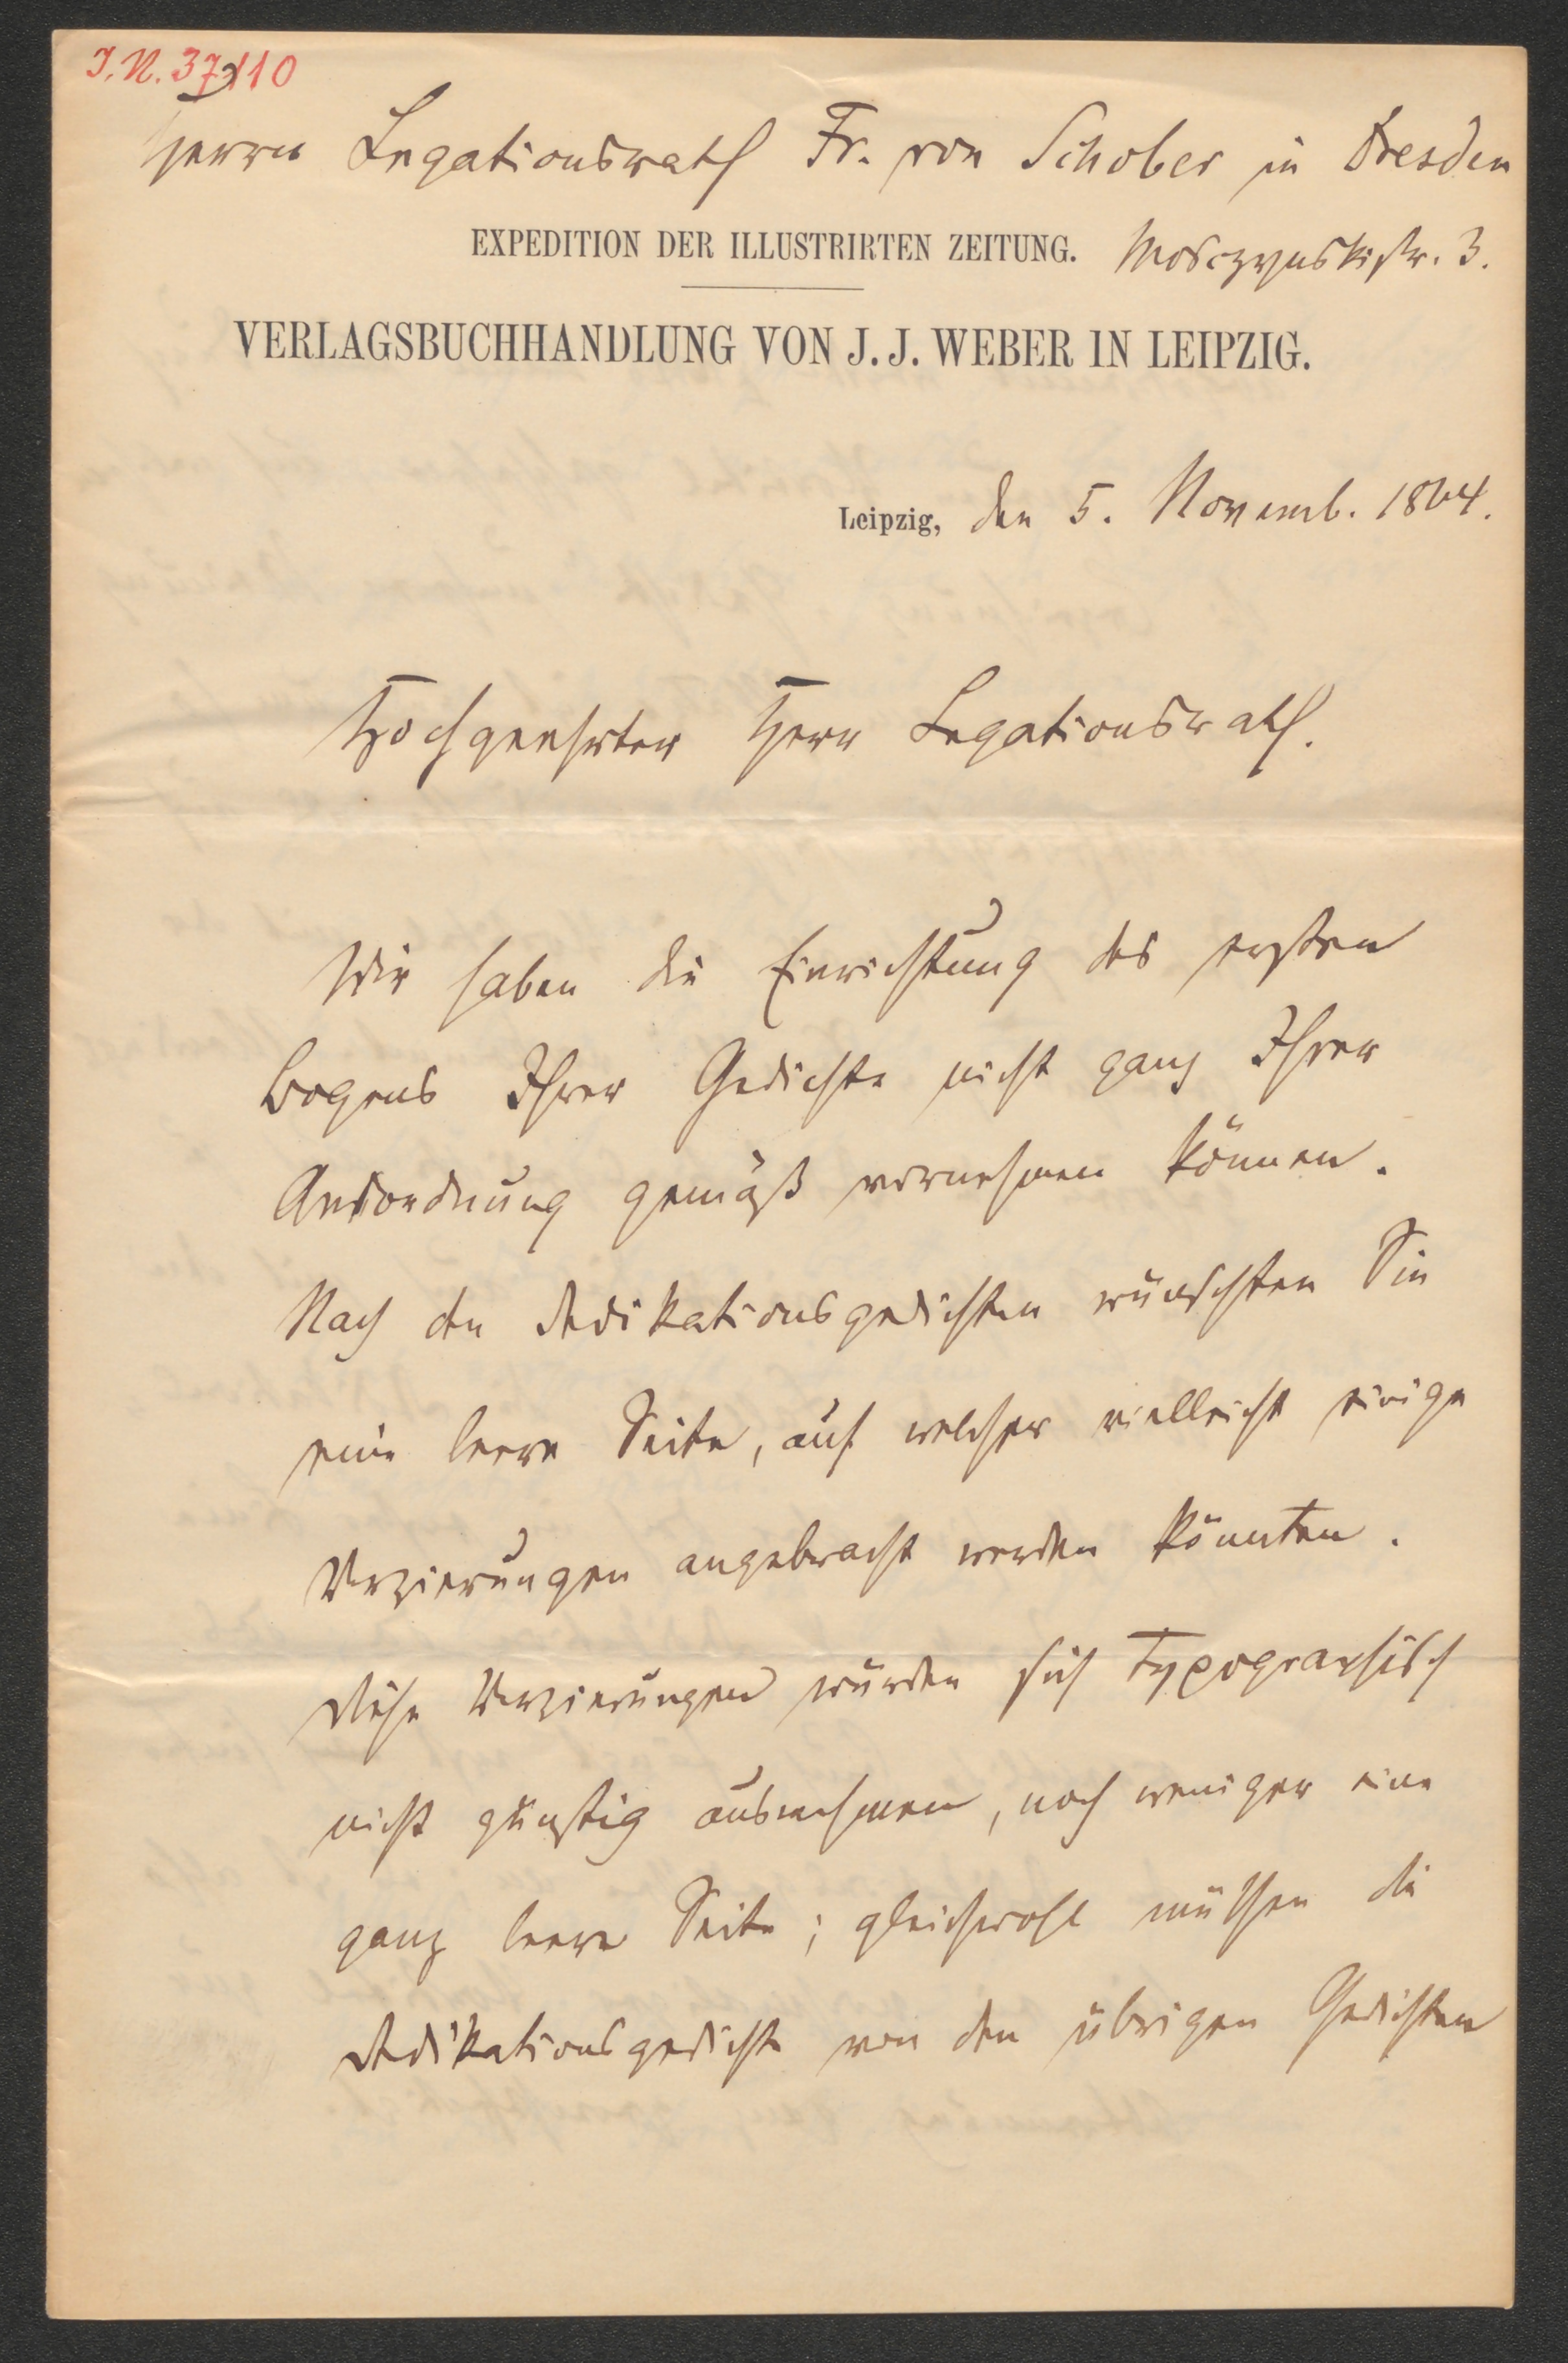 I.N. 37110
Herrn Legationsrath Fr. von Schober in Dresden
EXPEDITION DER ILLUSTRIRTEN ZEITUNG. Mosczynskistr. 3.
VERLAGSBUCHHANDLUNG VON J. J. WEBER IN LEIPZIG.
Leipzig, den 5. Novemb. 1864.
Hochgeehrter Herr Legationsrath.
Wir haben die Einrichtung des ersten
Bogens Ihrer Gedichte nicht ganz Ihrer
Anordnung gemäß vornehmen können.
Nach den Dedikationsgedichten wünschten Sie
eine leere Seite, auf welcher vielleicht einige
Verzierungen angebracht werden könnten.
Diese Verzierungen würden sich typographisch
nicht günstig ausnehmen, noch weniger eine
ganz leere Seite; gleichwohl müssen die
Dedikationsgedichte von den übrigen Gedichten